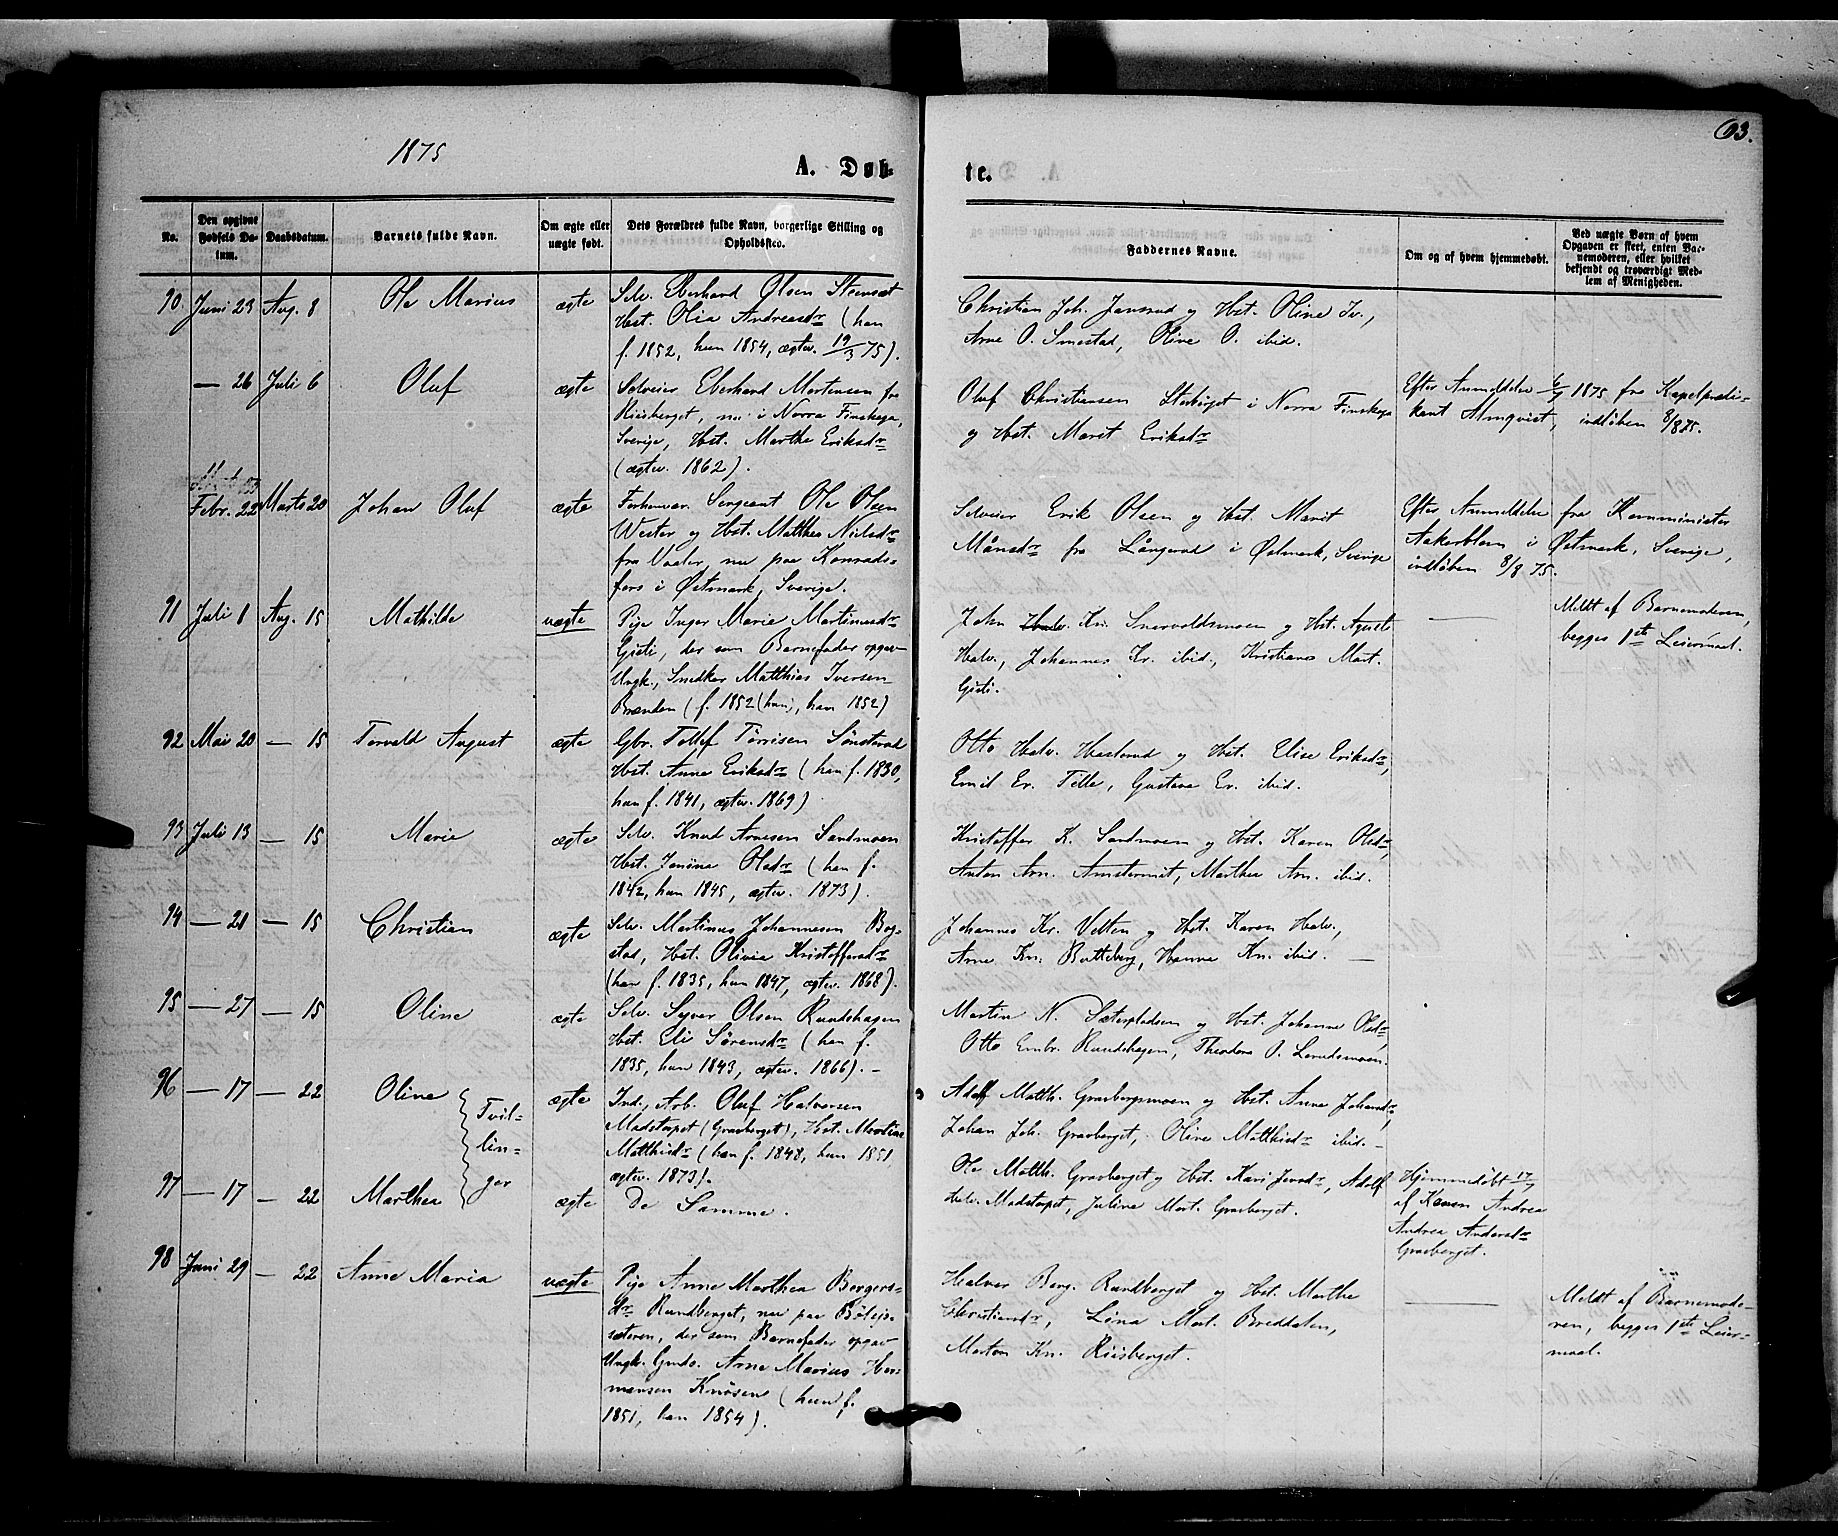 1875
A. Døb-
te.
63.
No.
Den opgivne
Fødsels Da-
tum.
Daabsdatum.
Barnets fulde Navn.
Om ægte eller
uægte født.
Dets Forældres fulde Navn, borgerlige Stilling og
Opholdssted.
Faddernes Navne.
Om og af hvem hjemmedøbt.
Ved uægte Børn af hvem
Opgaven er skeet, enten Bar-
nemoderen, eller hvilket
bekjendt og troværdigt Med-
lem af Menigheden.
90 Juni 23 Aug. 8 Ole Marius ægte
Selv. Eberhard Olsen Stensæt
Hst. Olia Andreasdr (han
f. 1852, hun 1854, ægtev. 19/3 75).
Christian Joh. Jansrud og Hst. Oline Iv.,
Arne O. Smestad, Oline O. ibid.
— 26 Juli 6 Oluf ægte
Selveier Eberhard Mortensen fra
Riisberget, nu i Norra Finskoga,
Sverige, Hst. Marthe Eriksdr
(ægtev. 1862).
Oluf Christiansen Storbirget i Norra Finskoga
og Hst. Marit Eriksdr
Efter Anmeldelse 6/7 1875 fra Kapelprædi-
kant Almqvist, indløben 8/8 75.
Febr. 22 Marts 20 Johan Oluf ægte
Forhenvær. Sergeant Ole Olsen
Wester og Hst. Matthea Nielsdr
fra Vaaler, nu paa Konrads-
fors i Østmark, Sverige.
Selveier Erik Olsen og Hst. Marit
Månsdr fra Långerud i Østmark, Sverige
Efter Anmeldelse fra Komminister
Aakerblom i Østmark, Sverige,
indløben 8/8 75.
91 Juli 1 Aug. 15 Mathilde uægte
Pige Inger Marie Martinusdr
Gjisti, der som Barnefader opgav
Ungk., Snedker Matthias Iversen
Brænden (f. 1852 (hun), han 1852)
John Kr. Snervoldsmoen og Hst. Agnete
Halv., Johannes Kr. ibid., Kristiane Mart.
Gjisti.
Meldt af Barnemoderen,
begges 1ste Leiermaal.
92 Mai 20 — 15 Torvald August ægte
Gbr. Tollef Tørrisen Sønsterud
Hst. Anne Eriksdr (han f. 1830,
hun f. 1841, ægtev. 1869)
Otto Halv. Hasterud og Hst. Elise Eriksdr,
Emil Er. Telle, Gustava Er. ibid.
93 Juli 13 — 15 Marie ægte
Selv. Knud Arnesen Sandmoen
Hst. Janine Olsdr (han f.
1842, hun 1845, ægtev. 1873).
Kristoffer K. Sandmoen og Hst. Karen Olsdr,
Anton Arn. Amstermit, Marthea Arn. ibid.
94 — 21 — 15 Christian ægte
Selv. Martinus Johannesen Bog-
stad, Hst. Olivia Kristoffersdr
(han f. 1835, hun 1847, ægtev. 1868).
Johannes Kr. Velten og Hst. Karen Halv.,
Arne Kn. Butteberg, Hanna Kn. ibid.
95 — 27 — 15 Oline ægte
Selv. Syver Olsen Rundshagen
Hst. Eli Sørensdr (han f.
1835, hun 1843, ægtev. 1866).
Martin N. Sæterpladsen og Hst. Johanne Olsdr,
Otto Embr. Rundshagen, Theodora O. Lundsmoen.
96 — 17 — 22 Oline ægte
Tvil-
lin-
ger
Ind., Arb. Oluf Halvorsen
Madstorpet (Gravberget), Hst. Martine
Matthisdr (han f. 1848, hun 1851,
ægtev. 1873).
Adolf Matth. Gravbergsmoen og Hst. Anne Johansdr,
Johan Joh. Gravberget, Oline Matthisdr ibid.
97 — 17 — 22 Marthea ægte
De Samme.
Ole Matth. Gravberget og Hst. Kari Jensdr, Adolf
Halv. Madstorpet, Juline Mart. Gravberget.
Hjemmedøbt 17/7
af Karen Andrea
Andrea Andersdr
Gravberget.
98 Juni 29 — 22 Anne Maria uægte
Pige Anne Marthea Bergers-
dr Rundberget, nu paa Bøliss-
sæteren, der som Barnefader opgav
Ungk. Gmds. Arne Marius Her-
mansen Knøsen (hun f.
1851, han 1854).
Halvor Berg. Rundberget og Hst. Marthe
Christiansdr, Lina Mart. Breddalen,
Morten Kn. Riisberget.
Meldt af Barnemode-
ren, begges 1ste Leier-
maal.